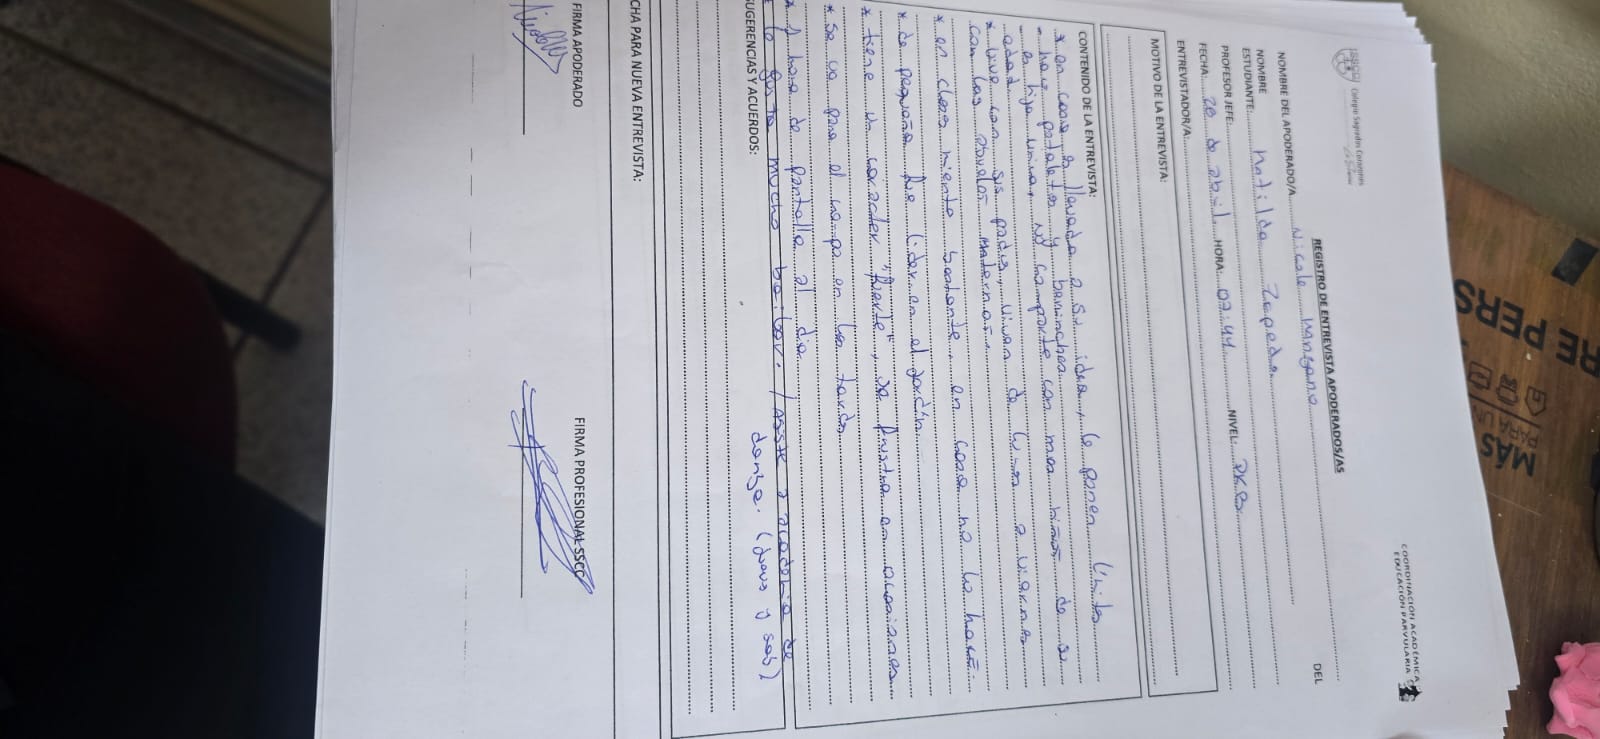 Colegio Sagrados Corazones
COORDINACIÓN ACADÉMICA
EDUCACIÓN PARVULARIA
REGISTRO DE ENTREVISTA APODERADOS/AS
NOMBRE DEL APODERADO/A Nicole Manzano DEL
NOMBRE
ESTUDIANTE: Matilda Zepeda
PROFESOR JEFE:
FECHA: 28 de abril HORA: 07:44 NIVEL: PK B
ENTREVISTADOR/A
MOTIVO DE LA ENTREVISTA:
CONTENIDO DE LA ENTREVISTA:
* en casa es llevada a su idea, le ponen límites
- hace pataletas y berrinches
- es hija única, no comparte con más niños de su
edad.
* vive con sus padres, viven de lunes a viernes
con los abuelos maternos.
* en clases miente bastante, en casa no lo hace.
* de pequeña fue líder en el jardín.
* tiene un carácter "fuerte", se frustra en ocasiones
* se va para el campo en las tardes
* 1 hora de pantalla al día
* le gusta mucho bailar. / Asiste a academia de
danza. (jueves y sab)
SUGERENCIAS Y ACUERDOS:
CHA PARA NUEVA ENTREVISTA:
FIRMA APODERADO
FIRMA PROFESIONAL SSCC
RE PERS
MÁS
PARA UN